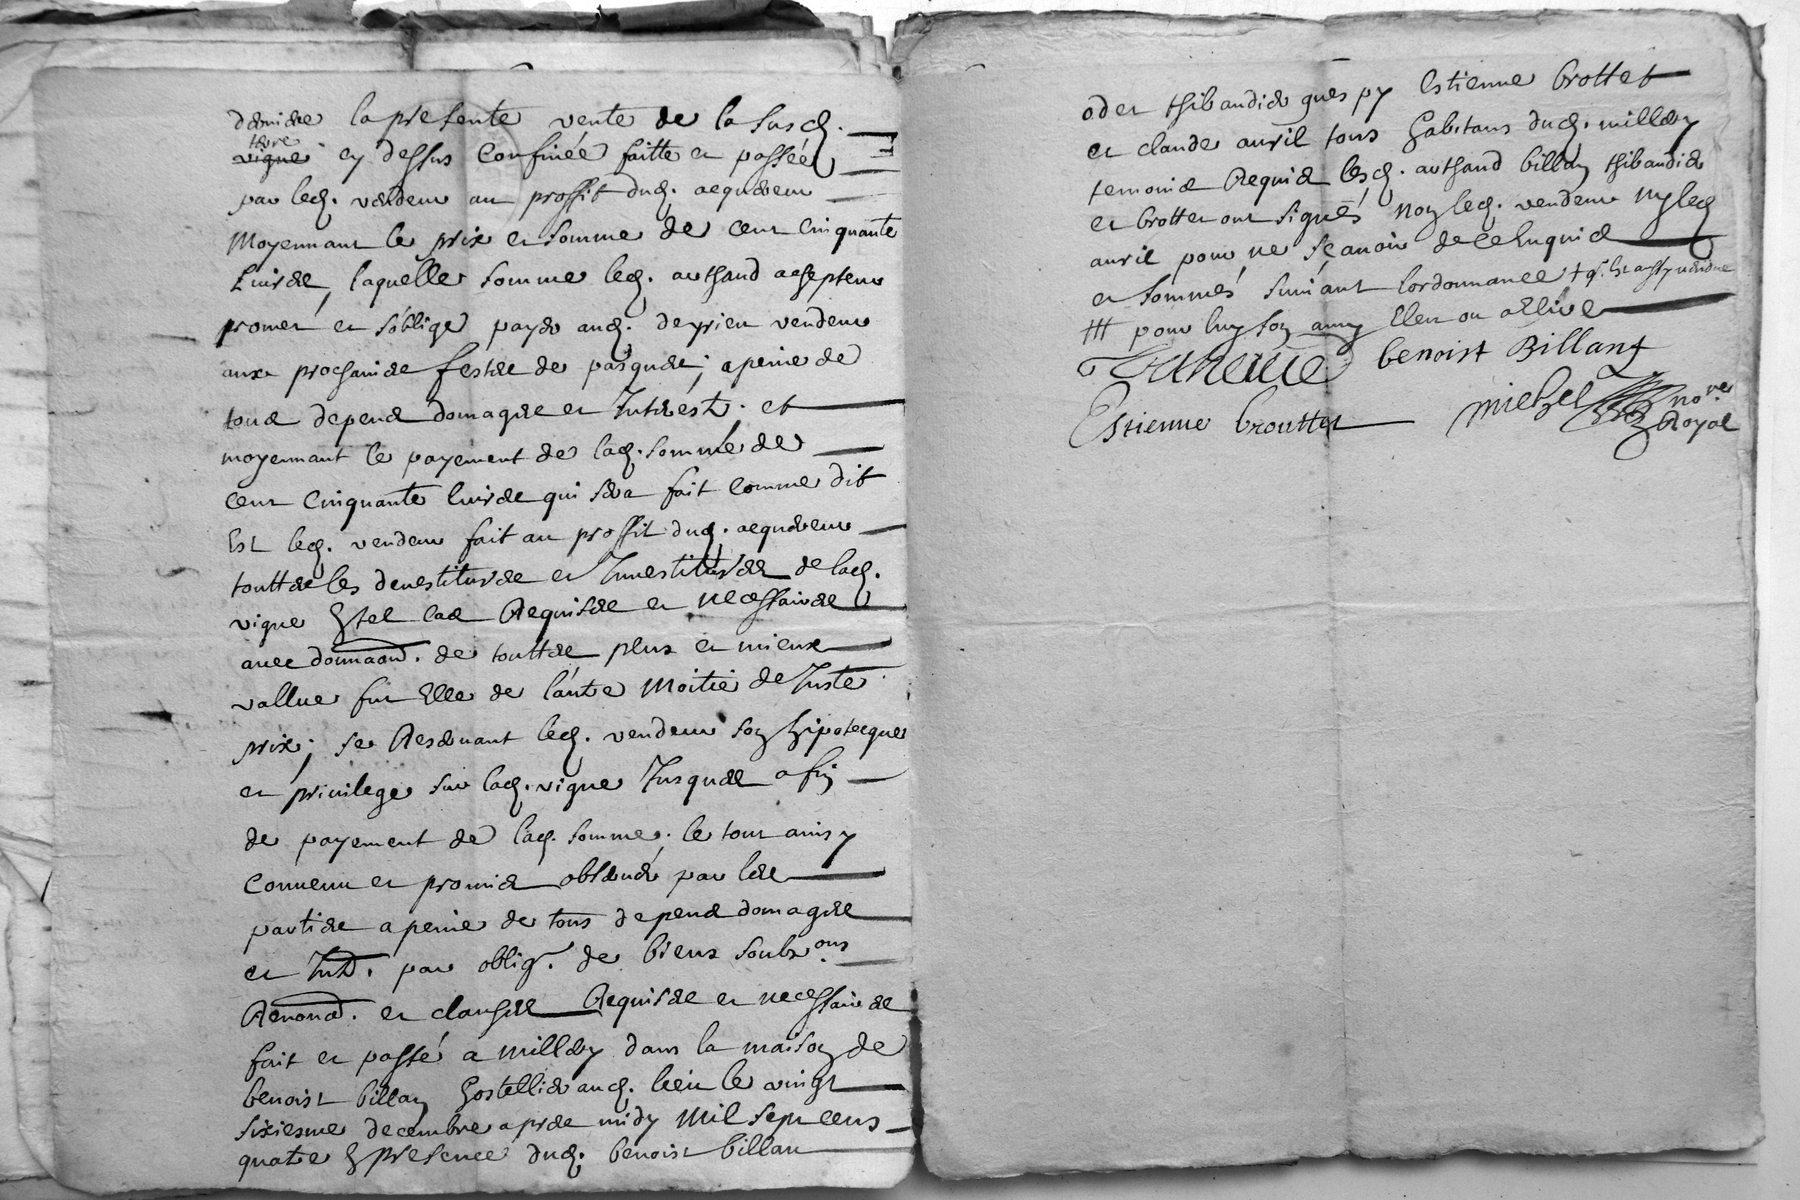 derniere la presente vente de la susd.
terre
vigne cy dessus Confinée faitte et passée
par led. vendeur au proffit dud. acquereur
Moyennant le prix et somme de cent Cinquante
Livres, laquelle somme led. authaud accepteur
promet et s'oblige payer aud. deyrieu vendeur
aux prochaines festes de pasques; a peine de
tous depens domages et Interests. et
moyennant le payement de lad. somme de
Cent Cinquante livres qui sera fait Comme dit
Est led. vendeur fait au proffit dud. acquereur
touttes les devestitures et Investitures de lad.
vigne En tel cas Requises et necessaires
avec donnaon. de touttes plus et mieux
vallue fut Elle de l'autre Moitié de Juste
prix; se Reservant led. vendeur son hipotecque
et privilege sur lad. vigne Jusques a fin
de payement de lad. somme. le tout ainsy
Convenu et promis observer par les
parties a peine de tous depens domages
et Int. par oblig. de biens soubz.ons
Renond. et clauses Requises et necessaires
fait et passé a millery dans la maison de
benoist billan hostellier aud. lieu le vingt
sixiesme decembre apres midy Mil sept cens
quatre En presence dud. benoist billan
oder thibaudier Estienne brottet
et claude avril tous habitans dud. millery
temoins Requis lesd. authaud billan thibaudier
et brottet ont signés Non led. vendeur Ny led
avril pour ne sçavoir de ce Enquis
et sommés suivant lordonnance +
+++ pour luy son amy Eleu ou a Elire
benoist Billant
Estienne broutter
michel nore.
Royal